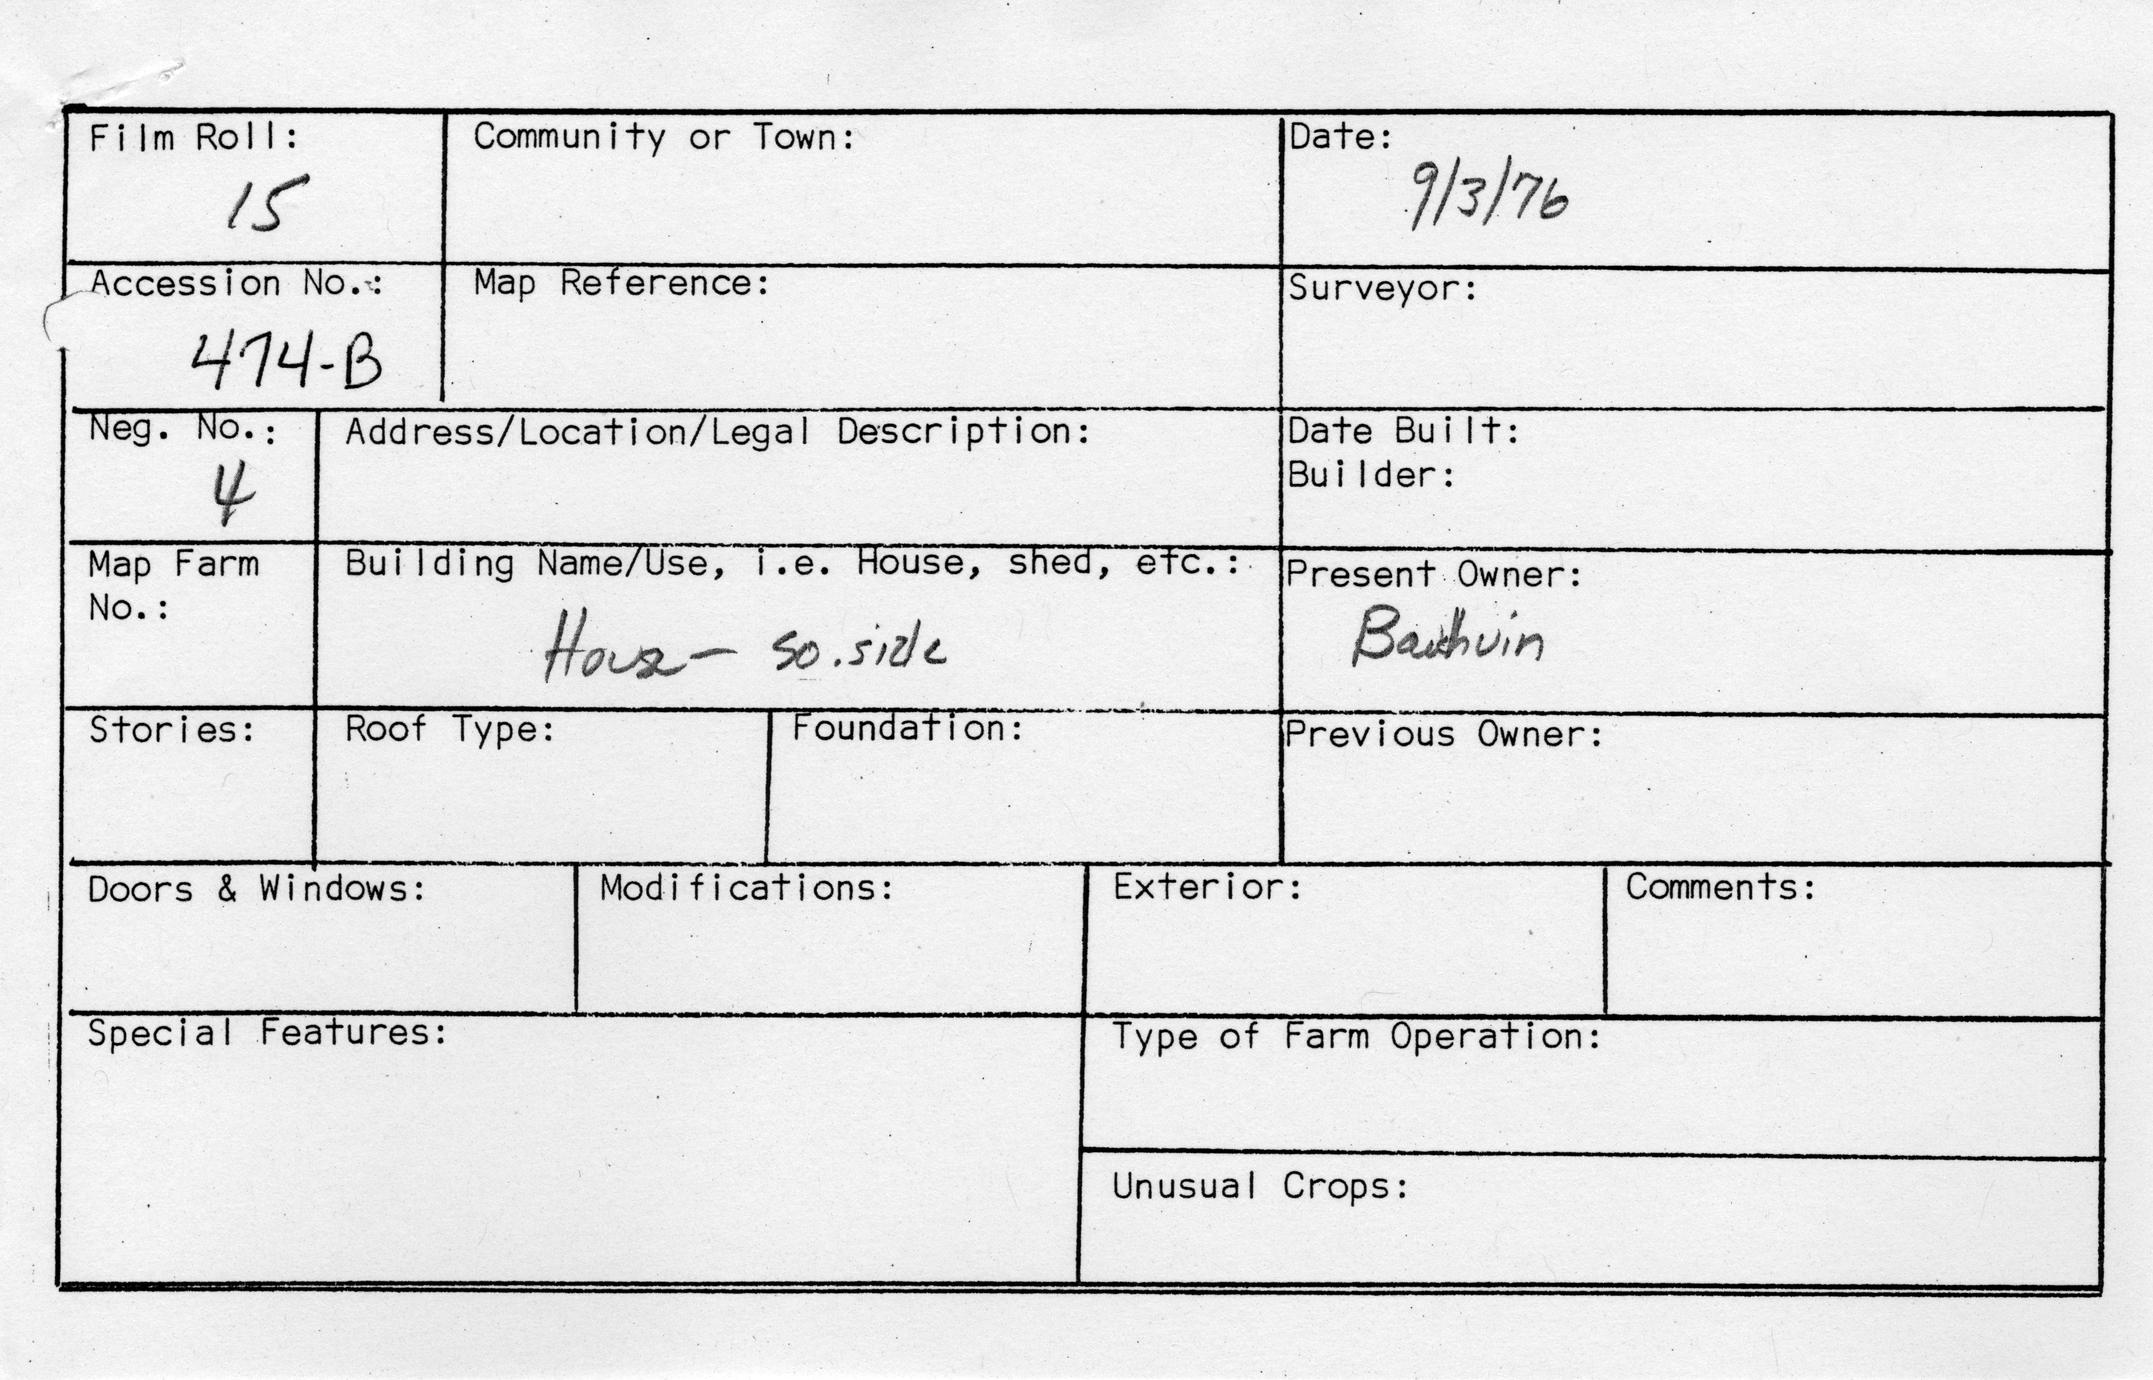 Film Roll:
15
Community or Town:
Date:
9/3/76
Accession No.:
474-B
Map Reference:
Surveyor:
Neg. No.:
4
Address/Location/Legal Description:
Date Built:
Builder:
Map Farm
No.:
Building Name/Use, i.e. House, shed, etc.:
House - so. side
Present Owner:
Stories:
Roof Type:
Foundation:
Previous Owner:
Doors & Windows:
Modifications:
Exterior:
Comments:
Special Features:
Type of Farm Operation:
Unusual Crops: